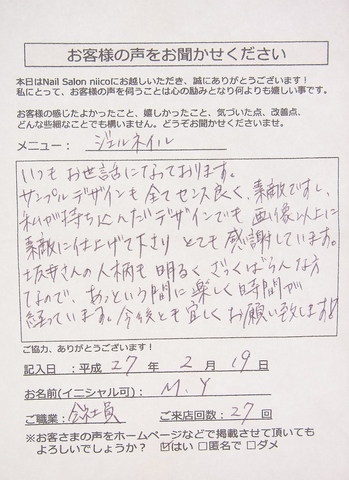 お客様の声をお聞かせください
本日はNail Salon niicoにお越しいただき、誠にありがとうございます！
私にとって、お客様の声を伺うことは心の励みとなり何よりも嬉しい事です。
お客様の感じたよかったこと、嬉しかったこと、気づいた点、改善点、
どんな些細なことでも構いません。どうぞお聞かせくださいませ。
メニュー： ジェルネイル
いつもお世話になっております。
サンプルデザインも全てセンス良く、素敵ですし、
私が持ち込んだデザインでも画像以上に
素敵に仕上げて下さり とても感謝しています。
坂井さんの人柄も明るく ざっくばらんな方
なので、あっという間に楽しく時間が
経っています。今後とも宜しくお願い致します!!
ご協力、ありがとうございます！
記入日：平成 27 年 2 月 19 日
お名前(イニシャル可)： M.Y
ご職業：会社員 ご来店回数：27 回
※お客さまの声をホームページなどで掲載させて頂いても
よろしいでしょうか？ ☑はい □匿名で □ダメ